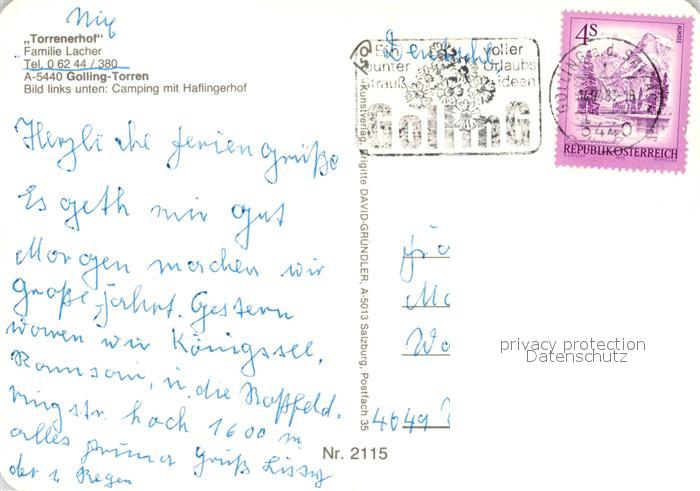 „Torrenerhof"
Familie Lacher
Tel. 0 62 44 / 380
A-5440 Golling-Torren
Bild links unten: Camping mit Haflingerhof
Herzliche feriengrüße
Es geth mir gut
Morgen machen wir
große fahrt. Gestern
waren wir Königssee,
Ramsau, u. die Roßfeld.
ringstr. hoch 1600 m
alles prima Gruß Lissy
Regen
Kunstverlag, Brigitte DAVID-GRÜNDLER, A-5013 Salzburg, Postfach 35
Nr. 2115
Ein
bunter
Strauß
voller
Urlaubs
ideen
GollinG
5440
4S
ALMSEE
REPUBLIK ÖSTERREICH
4649
privacy protection
Datenschutz